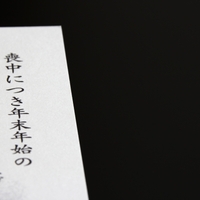 喪中につき年末年始の